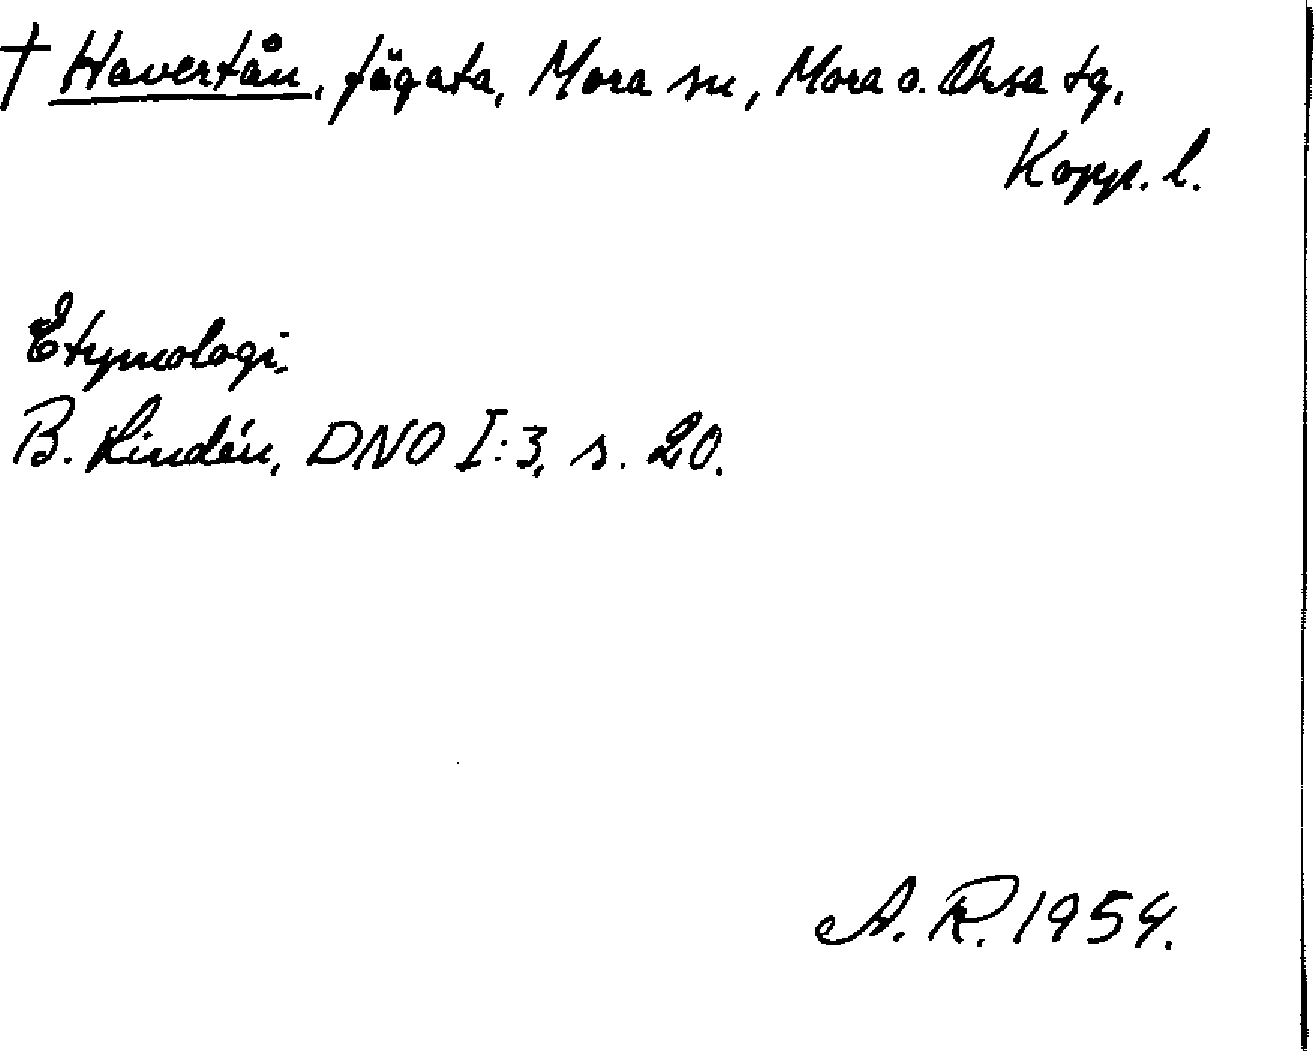 † Havertån, fägata, Mora sn, Mora o. Orsa tg,
Kopp. l.
Etymologi.
B. Lindén, DNO I:3, s. 20.
A. R. 1954.